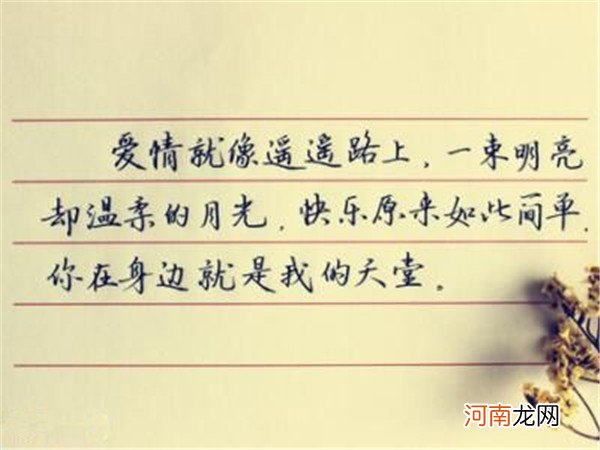 爱情就像遥遥路上,一束明亮
却温柔的月光,快乐原来如此简单,
你在身边就是我的天堂。
河南龙网